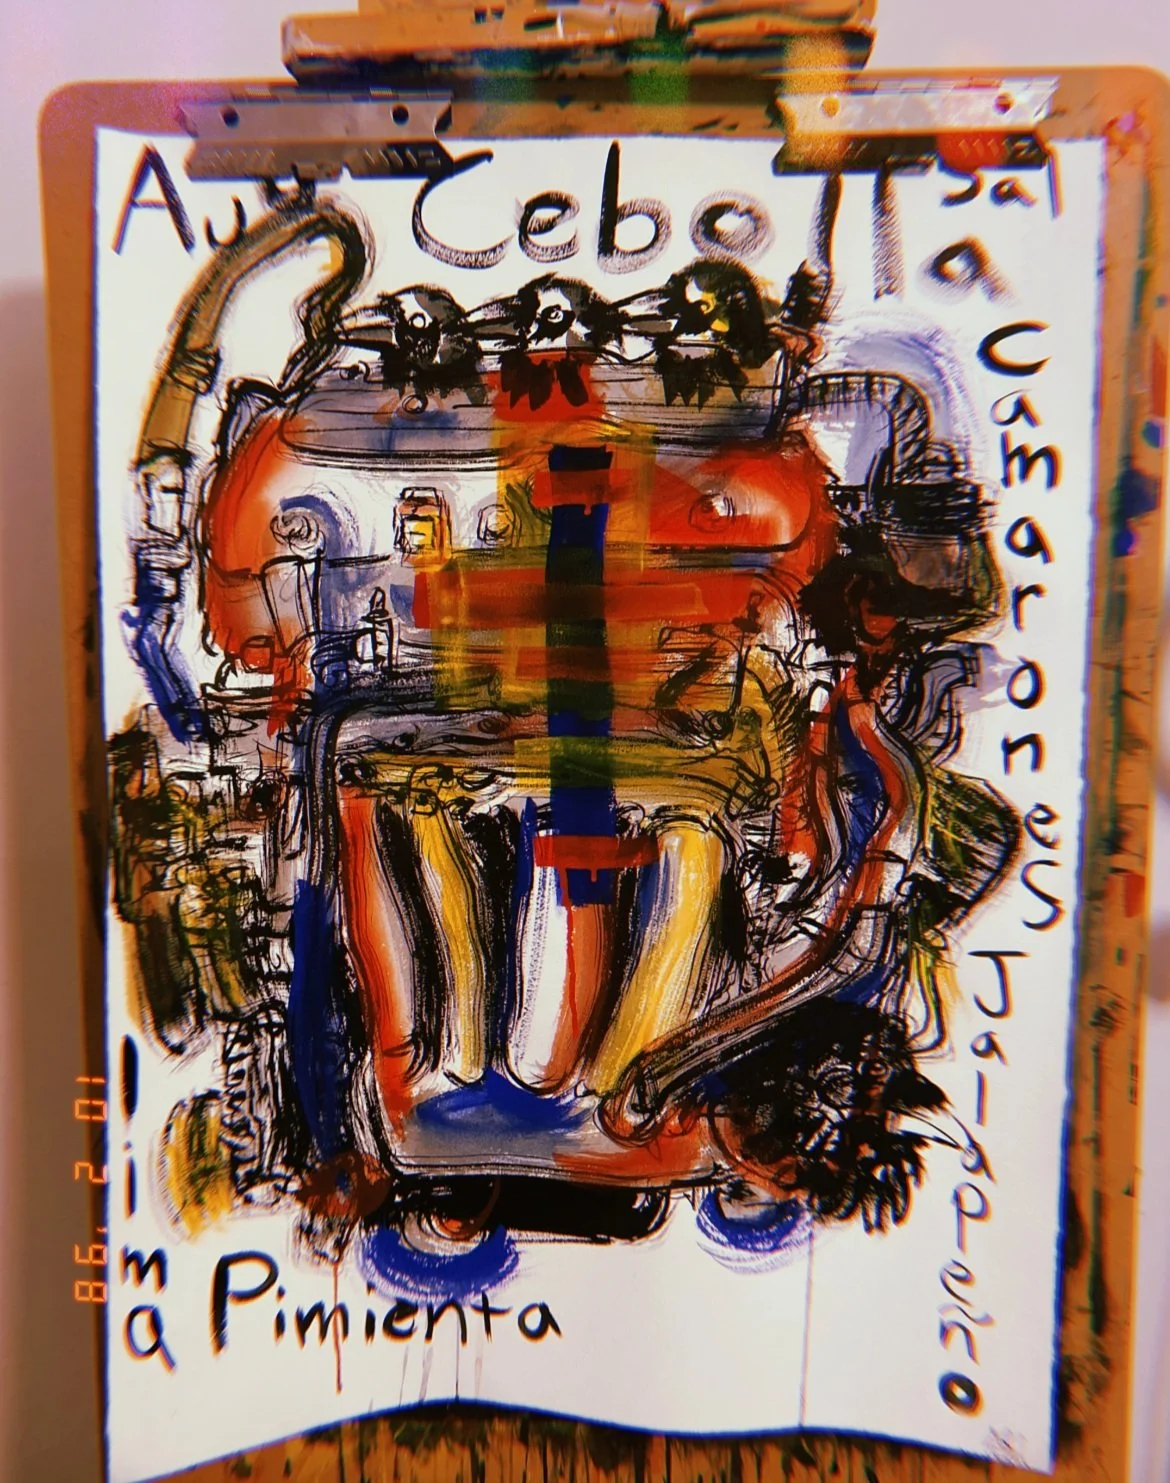 Cebolla
Sal
Camarones
Jalapeño
lima
Pimienta
10 2 '98